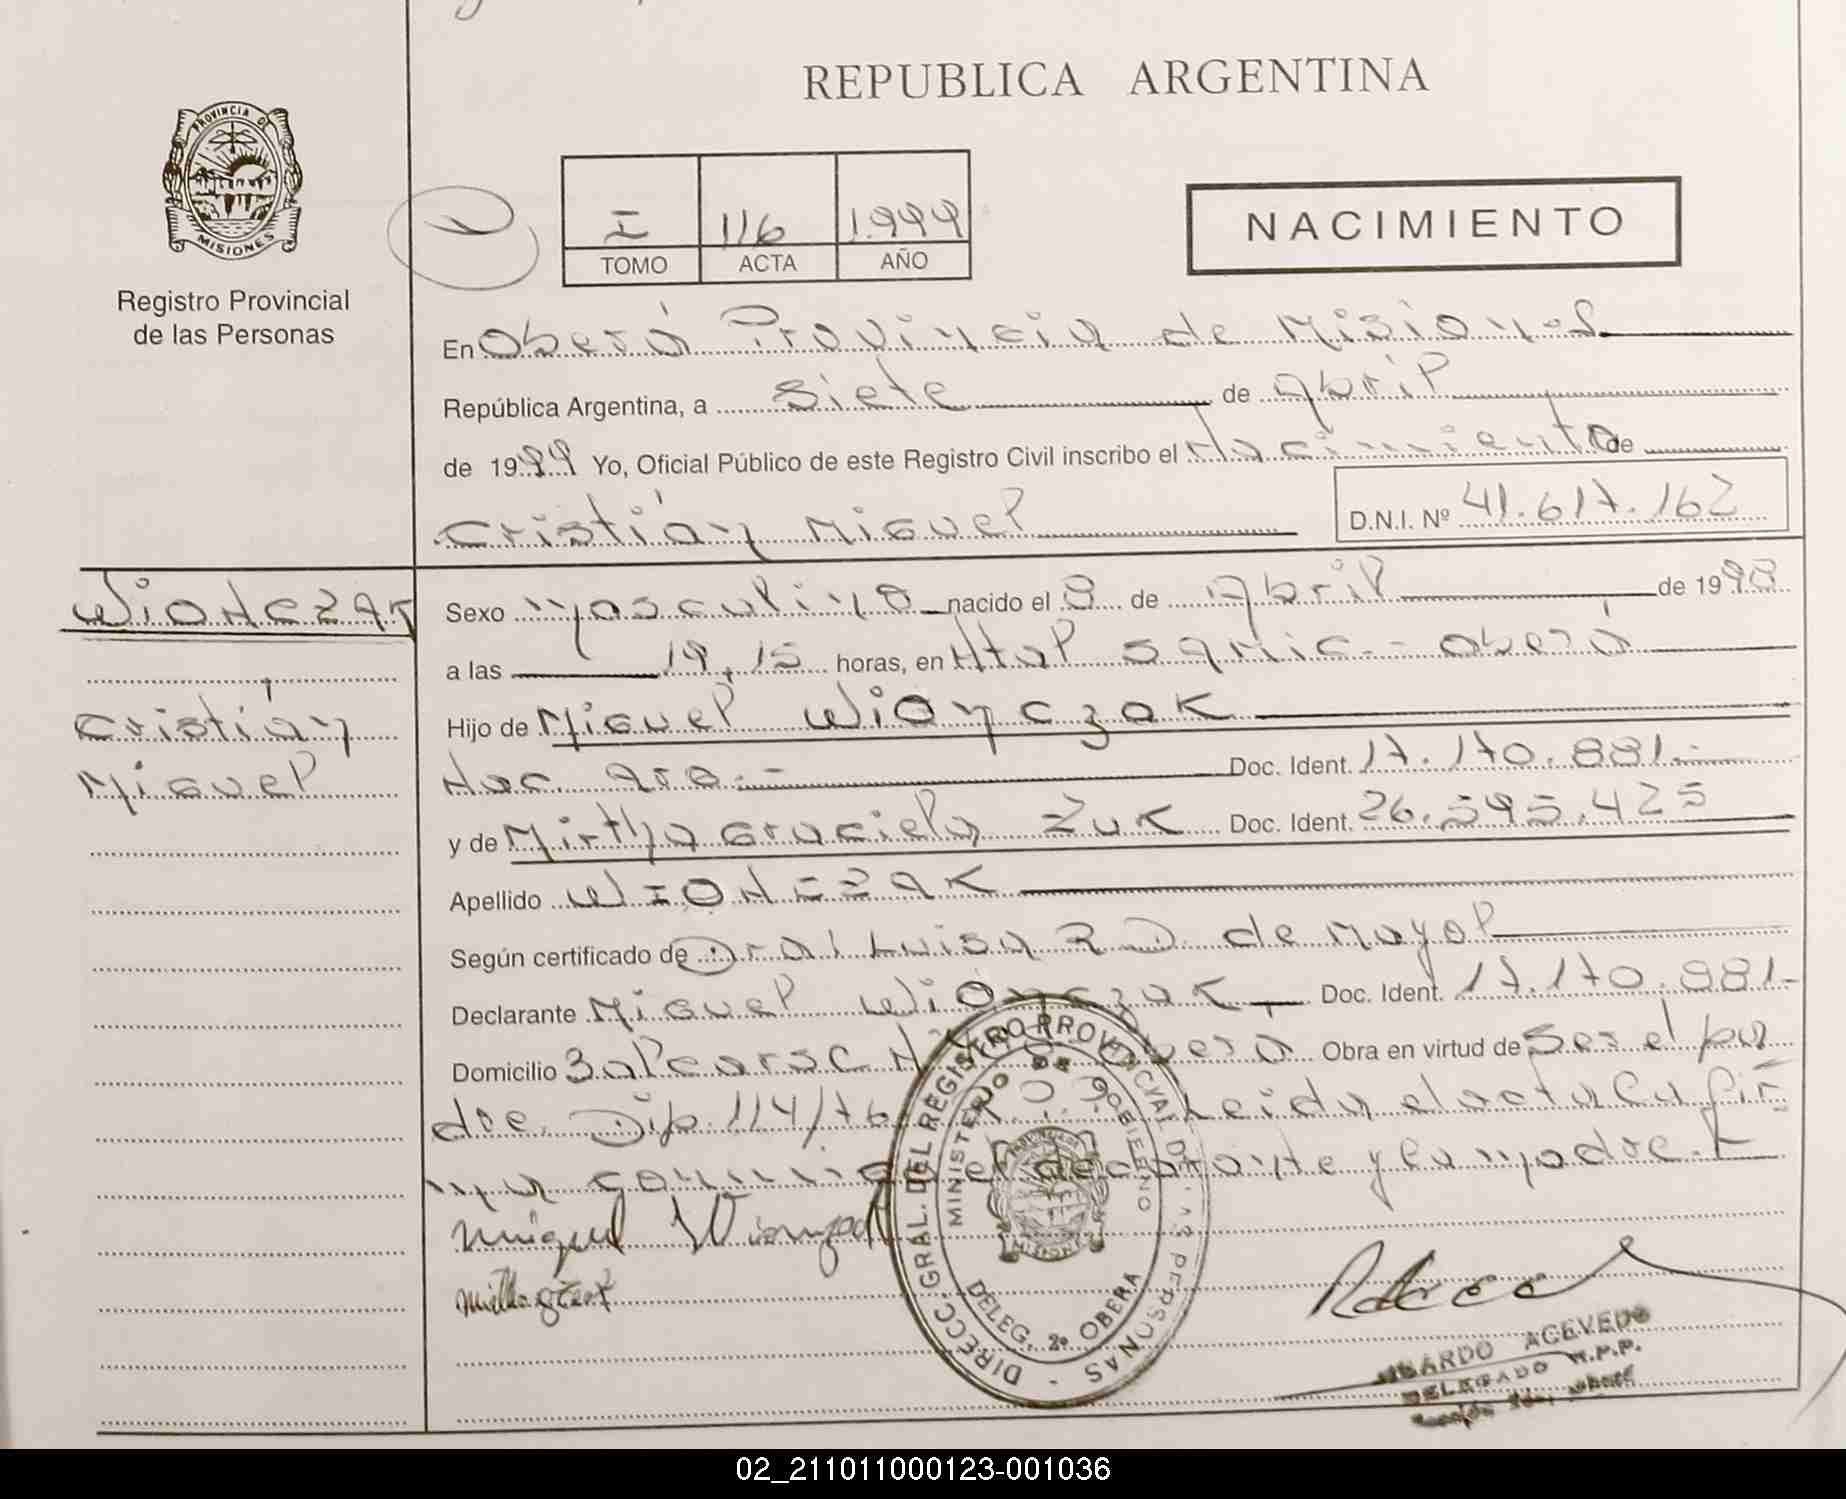 REPUBLICA ARGENTINA
PROVINCIA DE
MISIONES
Registro Provincial
de las Personas
I 116 1.999
TOMO ACTA AÑO
NACIMIENTO
En Oberá Provincia de Misiones
República Argentina, a siete de abril
de 1999 Yo, Oficial Público de este Registro Civil inscribo el Nacimiento de
Cristián Miguel
D.N.I. Nº 41.617.162
WIONCZAK
Cristián
Miguel
Sexo masculino nacido el 8 de Abril de 1998
a las 19,15 horas, en Htal SAMIC - Oberá
Hijo de Miguel Wionczak
Nac. Arg. Doc. Ident. 17.170.881.-
y de Mirtha Graciela Zuk Doc. Ident. 26.595.425
Apellido WIONCZAK
Según certificado de Dra. Luisa R D. de Mayol
Declarante Miguel Wionczak Doc. Ident. 17.170.881-
Domicilio Oberá Obra en virtud de ser el pa
dre. Dip. 114/76 Leida el acta la fir
man conmigo el declarante y la madre.
Miguel Wionczak
DIRECC. GRAL. DEL REGISTRO PROVINCIAL DE LAS PERSONAS
MINISTERIO DE GOBIERNO
MISIONES
DELEG. 2º OBERA
ACEVEDO
DELEGADO R.P.P.
02_211011000123-001036